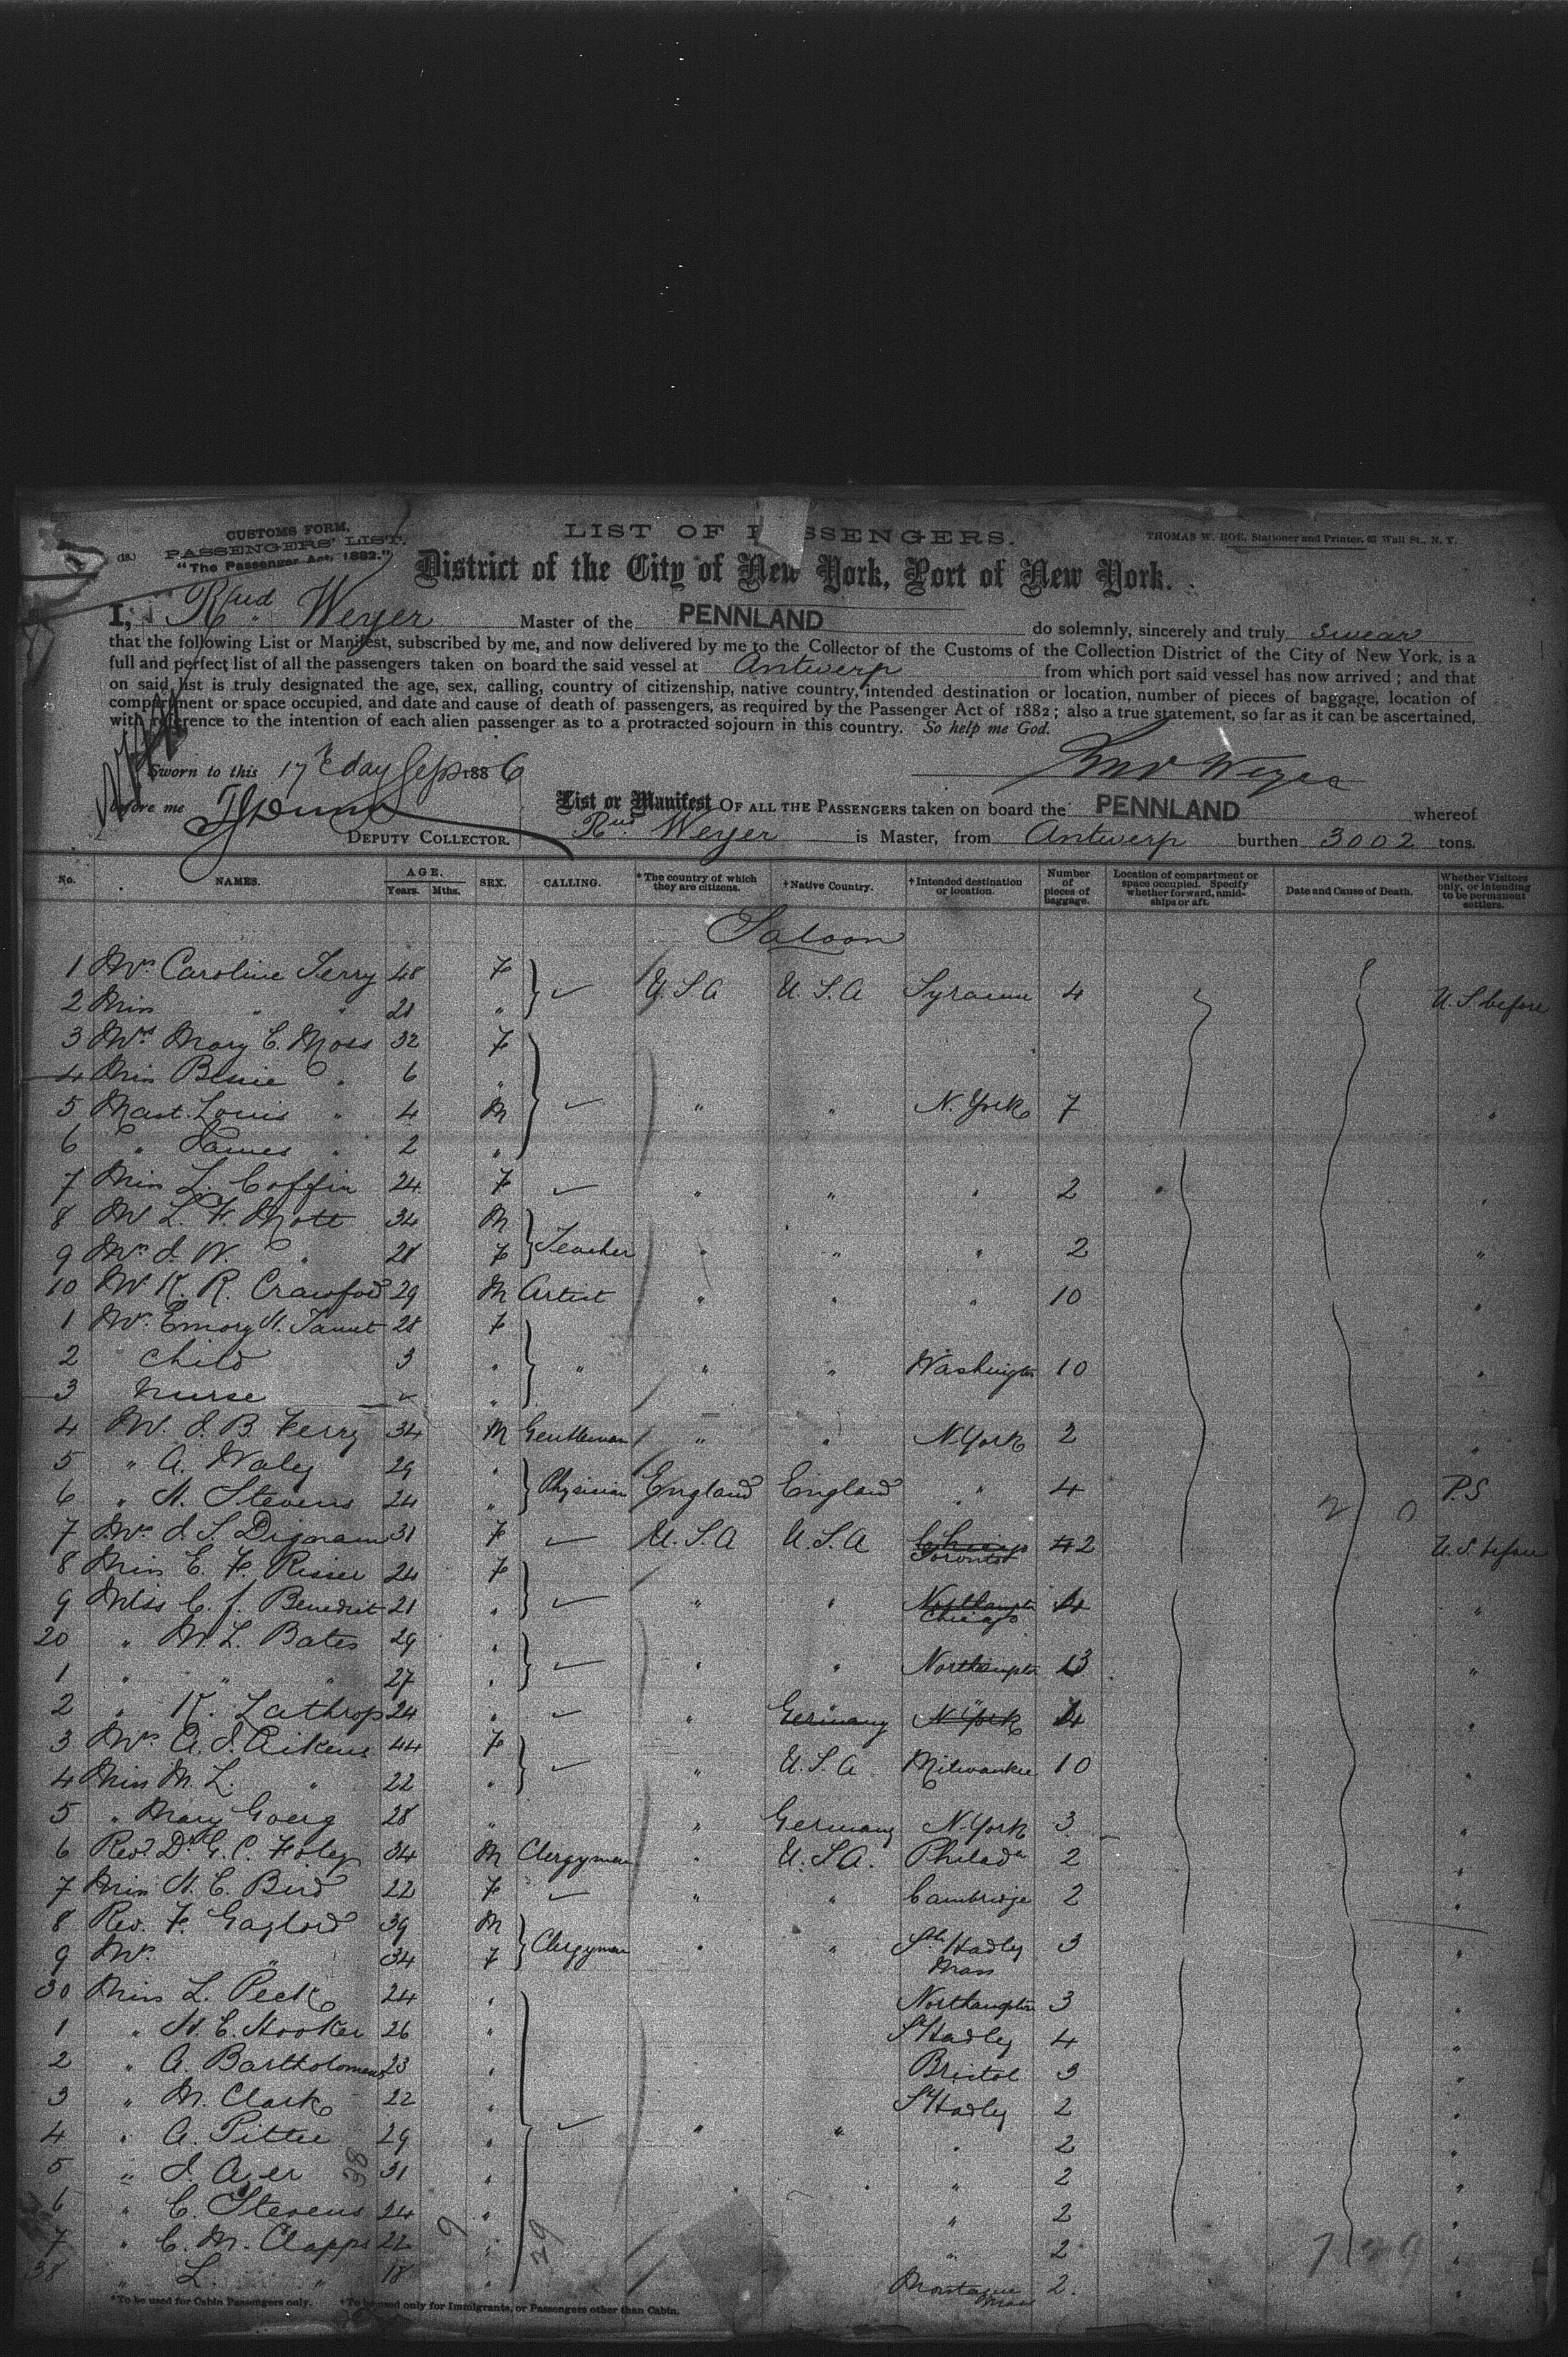 CUSTOMS FORM.
(18.) PASSENGERS' LIST.
"The Passenger Act, 1882."
LIST OF P SSENGERS.
THOMAS W. HOE, Stationer and Printer, 63 Wall St., N. Y.
District of the City of New York, Port of New York.
I, Rud Weyer Master of the PENNLAND do solemnly, sincerely and truly swear
that the following List or Manifest, subscribed by me, and now delivered by me to the Collector of the Customs of the Collection District of the City of New York, is a
full and perfect list of all the passengers taken on board the said vessel at Antwerp from which port said vessel has now arrived; and that
on said list is truly designated the age, sex, calling, country of citizenship, native country, intended destination or location, number of pieces of baggage, location of
compartment or space occupied, and date and cause of death of passengers, as required by the Passenger Act of 1882; also a true statement, so far as it can be ascertained,
with reference to the intention of each alien passenger as to a protracted sojourn in this country. So help me God.
Rud Weyer
Sworn to this 17 day Sep 1886
before me
DEPUTY COLLECTOR.
List or Manifest OF ALL THE PASSENGERS taken on board the PENNLAND whereof
Rud Weyer is Master, from Antwerp burthen 3002 tons.
No. NAMES. AGE. Years. Mths. SEX. CALLING. *The country of which they are citizens. †Native Country. †Intended destination or location. Number of pieces of baggage. Location of compartment or space occupied. Specify whether forward, amidships or aft. Date and Cause of Death. Whether Visitors only, or intending to be permanent settlers.
Saloon
1 Mrs Caroline Terry 48 F U.S.A U.S.A Syracuse 4 U.S. before
2 Miss " " 21 "
3 Mrs Mary C. Moss 32 F
4 Miss Bessie " 6 "
5 Mast. Louis " 4 M " " N. York 7 "
6 " James " 2 "
7 Miss L. Coffin 24 F " " " 2 "
8 Mr L. F. Mott 34 M
9 Mrs J. W. " 28 F Teacher " " " 2 "
10 Mr K. R. Crawford 29 M Artist " " " 10 "
1 Mrs Emory H. 28 F
2 Child 3 " " " " Washington 10 "
3 Nurse "
4 Mr. J. B. Ferry 34 M Gentleman " " N York 2 "
5 " A. Waley 29 "
6 " H. Stevens 24 " Physician England England " 4 P.S
7 Mrs J. S. Dignam 31 F U.S.A U.S.A Chicago Toronto 2 U.S. before
8 Miss E. F. Risser 24 F
9 Miss C. J. Benedict 21 " " " Northampton Chicago 4 "
20 " M. L. Bates 29 "
1 " " " 27 " " " Northampton 3 "
2 " K. Lathrop 24 " " Germany N York 4 "
3 Mrs A. J. Aikens 44 F
4 Miss M. L. " 22 " " U.S.A. Milwaukee 10 "
5 " Mary Goerg 28 " " Germany N York 3 "
6 Revd Dr G. C. Foley 34 M Clergyman " U.S.A. Philada 2 "
7 Miss H. E. Bird 22 F " " Cambridge 2 "
8 Rev. F. Gaylord 39 M
9 Mrs " 34 F Clergyman " " Sth Hadley Mass 3 "
30 Miss L. Peck 24 " Northampton 3 "
1 " H. E. Hooker 26 " S Hadley 4 "
2 " A. Bartholomew 23 " Bristol 3 "
3 " M. Clark 22 " S Hadley 2 "
4 " A. Pittee 29 " " " " 2 "
5 " J. Ayer 31 " " 2 "
6 " C. Stevens 24 " " 2 "
7 " C. M. Clapp 22 " " 2 "
38 " L. " 18 " Montague Mass 2. "
38 9 29
*To be used for Cabin Passengers only. †To be used only for Immigrants, or Passengers other than Cabin.